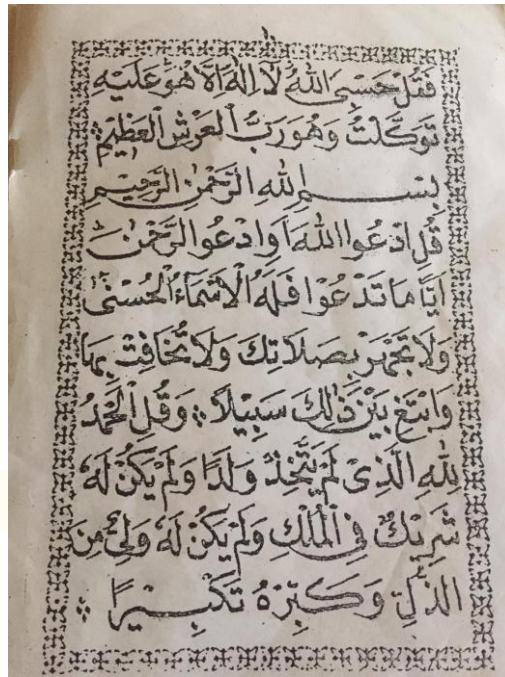 فَقُلْ حَسْبِىَ اللّٰهُ لَآ اِلٰهَ اِلَّا هُوَ عَلَيْهِ
تَوَكَّلْتُ وَهُوَ رَبُّ الْعَرْشِ الْعَظِيْمِ ۞
بِسْمِ اللّٰهِ الرَّحْمٰنِ الرَّحِيْمِ
قُلِ ادْعُوا اللّٰهَ اَوِادْعُوا الرَّحْمٰنَ
اَيًّا مَا تَدْعُوْا فَلَهُ الْاَسْمَآءُ الْحُسْنٰى
وَلَا تَجْهَرْ بِصَلَاتِكَ وَلَا تُخَافِتْ بِهَا
وَابْتَغِ بَيْنَ ذٰلِكَ سَبِيْلًا ۞ وَقُلِ الْحَمْدُ
لِلّٰهِ الَّذِىْ لَمْ يَتَّخِذْ وَلَدًا وَلَمْ يَكُنْ لَهٗ
شَرِيْكٌ فِى الْمُلْكِ وَلَمْ يَكُنْ لَهٗ وَلِىٌّ مِنَ
الذُّلِّ وَكَبِّرْهُ تَكْبِيْرًا ۞